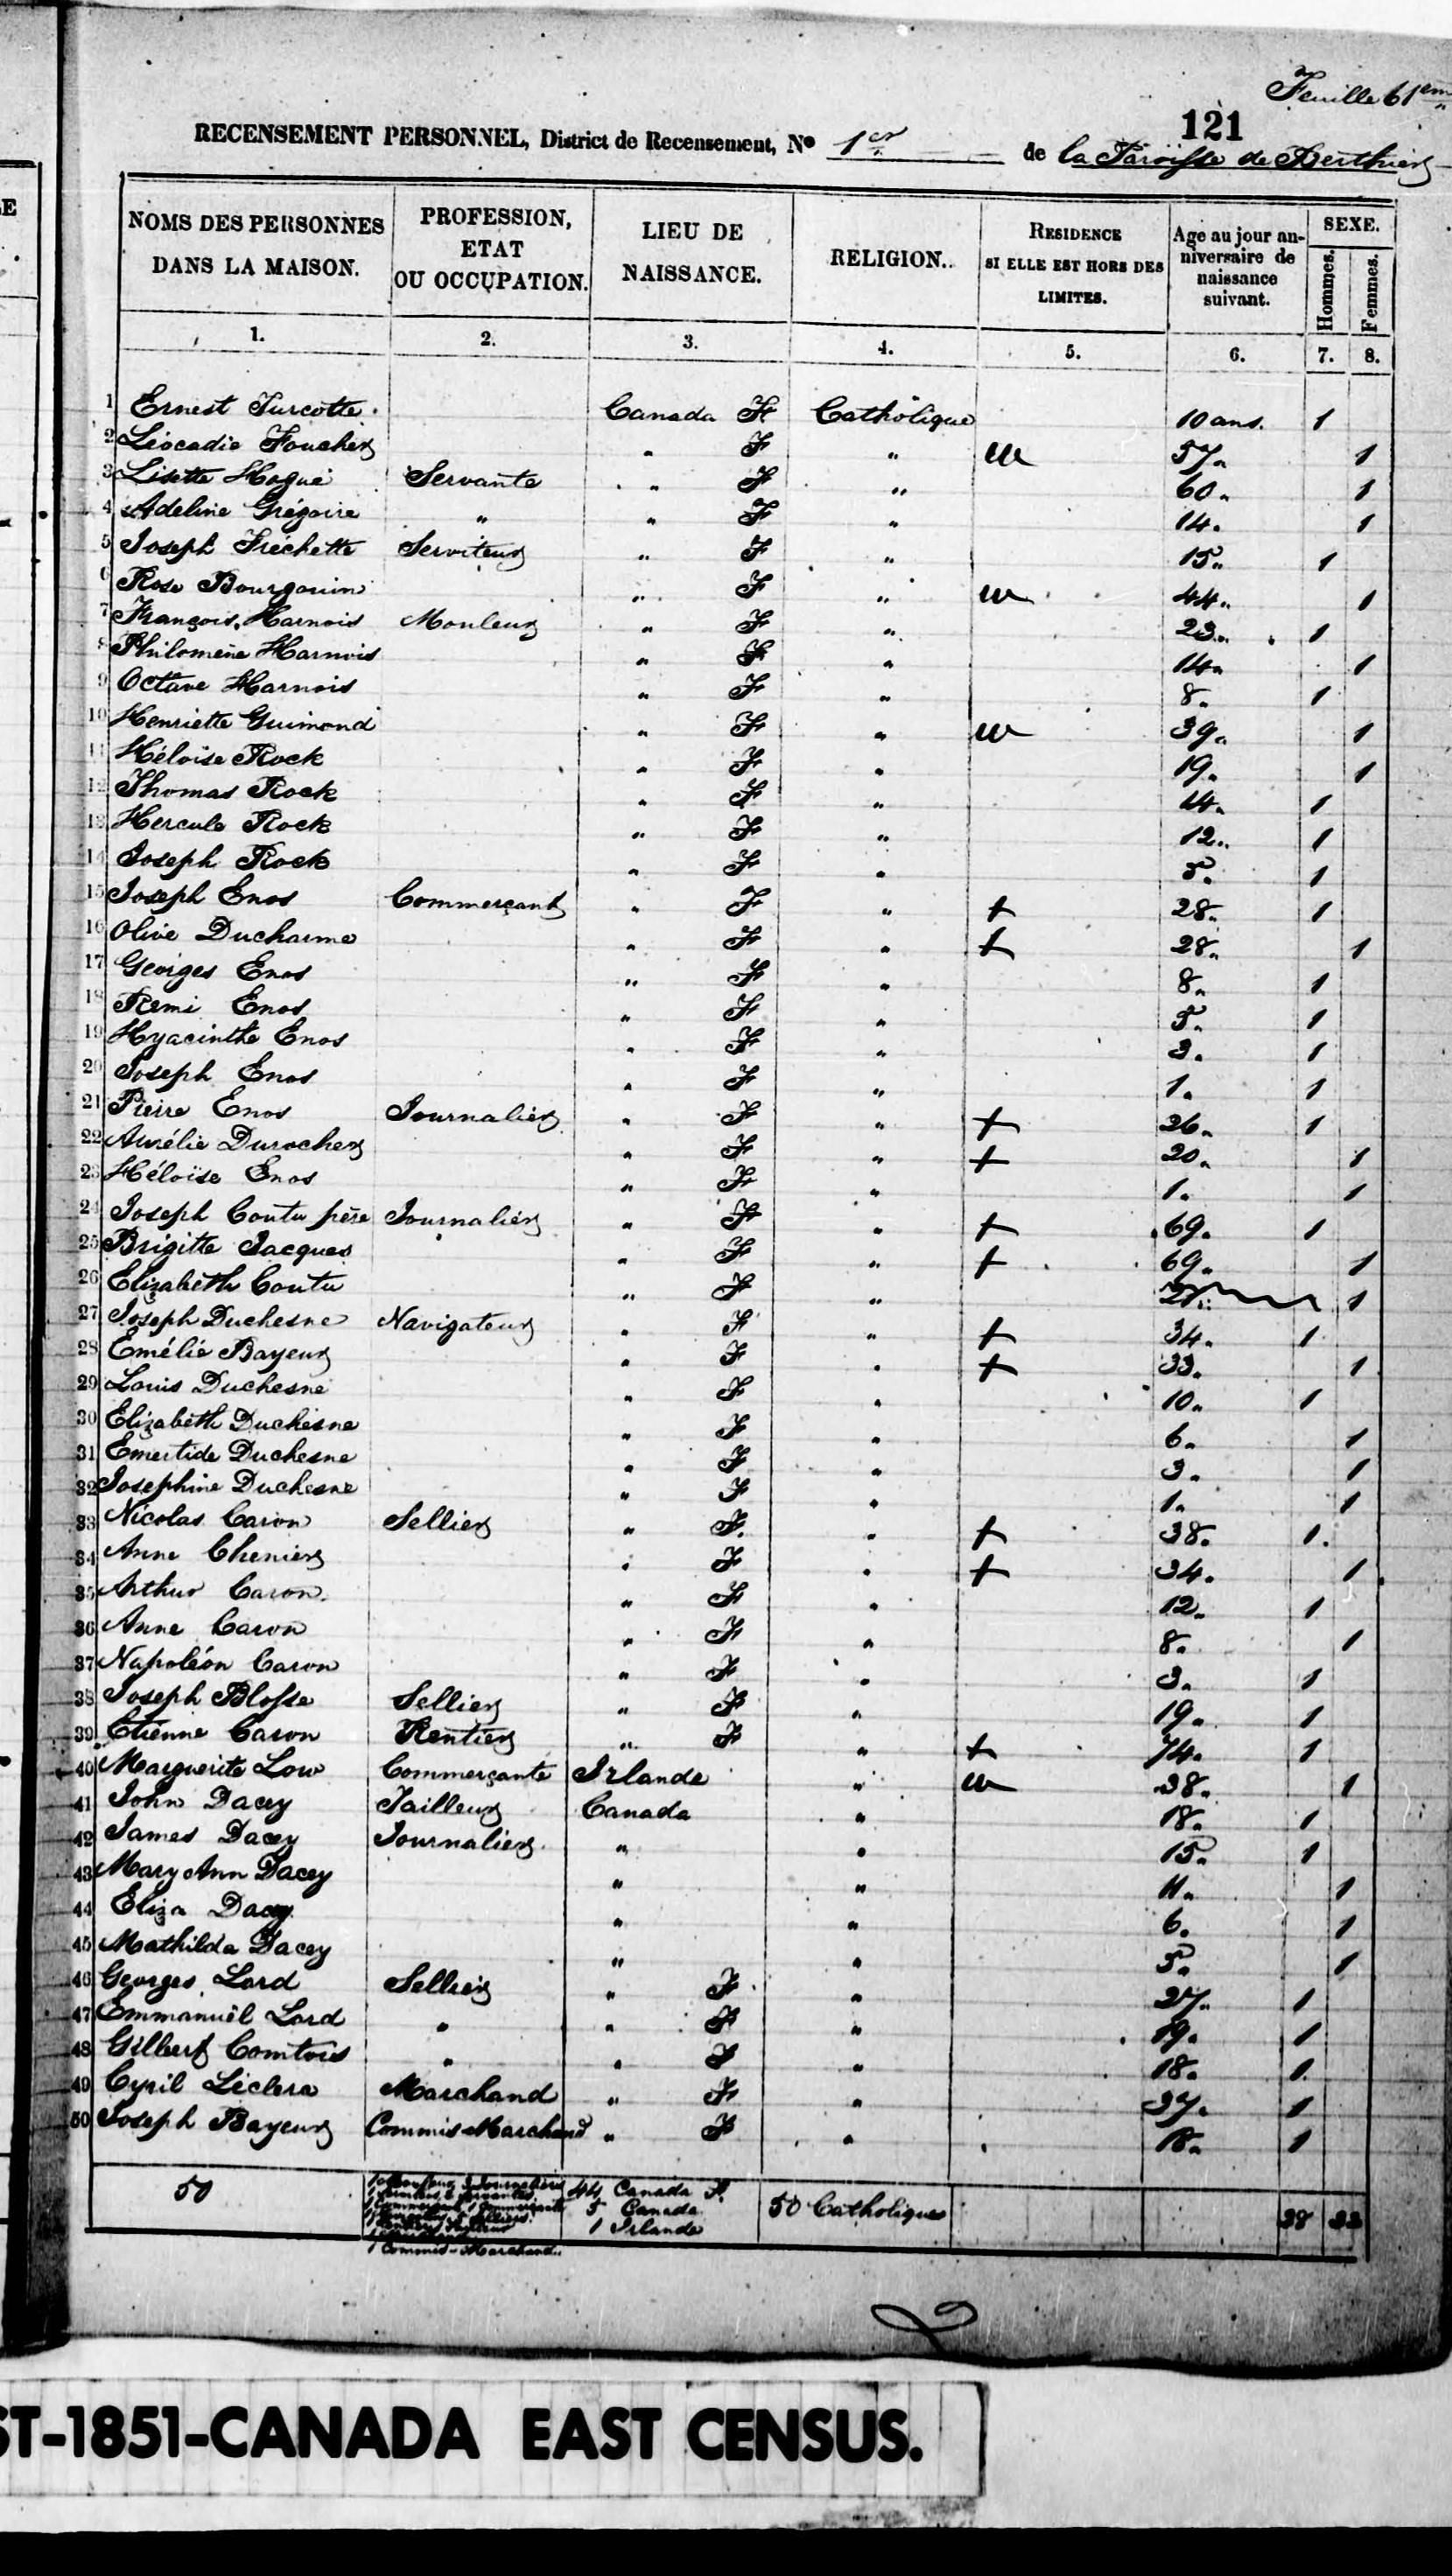 Feuille 61em
121
RECENSEMENT PERSONNEL, District de Recensement, No 1er de la Paroisse de Berthier
NOMS DES PERSONNES DANS LA MAISON. PROFESSION, ETAT OU OCCUPATION. LIEU DE NAISSANCE. RELIGION. RESIDENCE SI ELLE EST HORS DES LIMITES. Age au jour anniversaire de naissance suivant. SEXE. Hommes. Femmes.
1. 2. 3. 4. 5. 6. 7. 8.
1 Ernest Turcotte Canada F Catholique 10 ans. 1
2 Léocadie Foucher " F " w 57 " 1
3 Lisette Hogue Servante " F " 60 " 1
4 Adeline Grégoire " " F " 14 " 1
5 Joseph Fréchette Serviteur " F " 15 " 1
6 Rose Bourgouin " F " w 44 " 1
7 François Harnois Mouleur " F " 23 " 1
8 Philomène Harnois " F " 14 " 1
9 Octave Harnois " F " 8 " 1
10 Henriette Guimond " F " w 39 " 1
11 Héloïse Rock " F " 19 " 1
12 Thomas Rock " F " 14 " 1
13 Hercule Rock " F " 12 " 1
14 Joseph Rock " F " 5 " 1
15 Joseph Enos Commerçant " F " + 28 " 1
16 Olive Ducharme " F " + 28 " 1
17 Georges Enos " F " 8 " 1
18 Remi Enos " F " 5 " 1
19 Hyacinthe Enos " F " 3 " 1
20 Joseph Enos " F " 1 " 1
21 Pierre Enos Journalier " F " + 26 " 1
22 Aurélie Durocher " F " + 20 " 1
23 Héloïse Enos " F " 1 " 1
24 Joseph Coutu père Journalier " F " + 69 " 1
25 Brigitte Jacques " F " + 69 " 1
26 Elizabeth Coutu " F " 1
27 Joseph Duchesne Navigateur " F " + 34 " 1
28 Emélie Bayeur " F " + 33 " 1
29 Louis Duchesne " F " 10 " 1
30 Elizabeth Duchesne " F " 6 " 1
31 Emertide Duchesne " F " 3 " 1
32 Josephine Duchesne " F " 1 " 1
33 Nicolas Caron Sellier " F " + 38 " 1
34 Anne Chenier " F " + 34 " 1
35 Arthur Caron " F " 12 " 1
36 Anne Caron " F " 8 " 1
37 Napoléon Caron " F " 3 " 1
38 Joseph Blosse Sellier " F " 19 " 1
39 Etienne Caron Rentier " F " + 74 " 1
40 Marguerite Low Commerçante Irlande " w 38 " 1
41 John Dacey Tailleur Canada " 18 " 1
42 James Dacey Journalier " " 15 " 1
43 Mary Ann Dacey " " 11 " 1
44 Eliza Dacey " " 6 " 1
45 Mathilda Dacey " " 5 " 1
46 Georges Lord Sellier " F " 27 " 1
47 Emmanuël Lord " " F " 19 " 1
48 Gilbert Comtois " " F " 18 " 1
49 Cyril Leclerc Marchand " F " 37 " 1
50 Joseph Bayeur Commis-Marchand " F " 18 " 1
50 44 Canada F. 50 Catholiques 28 22
5 Canada
1 Irlande
1 Commis-Marchand
ST-1851-CANADA EAST CENSUS.